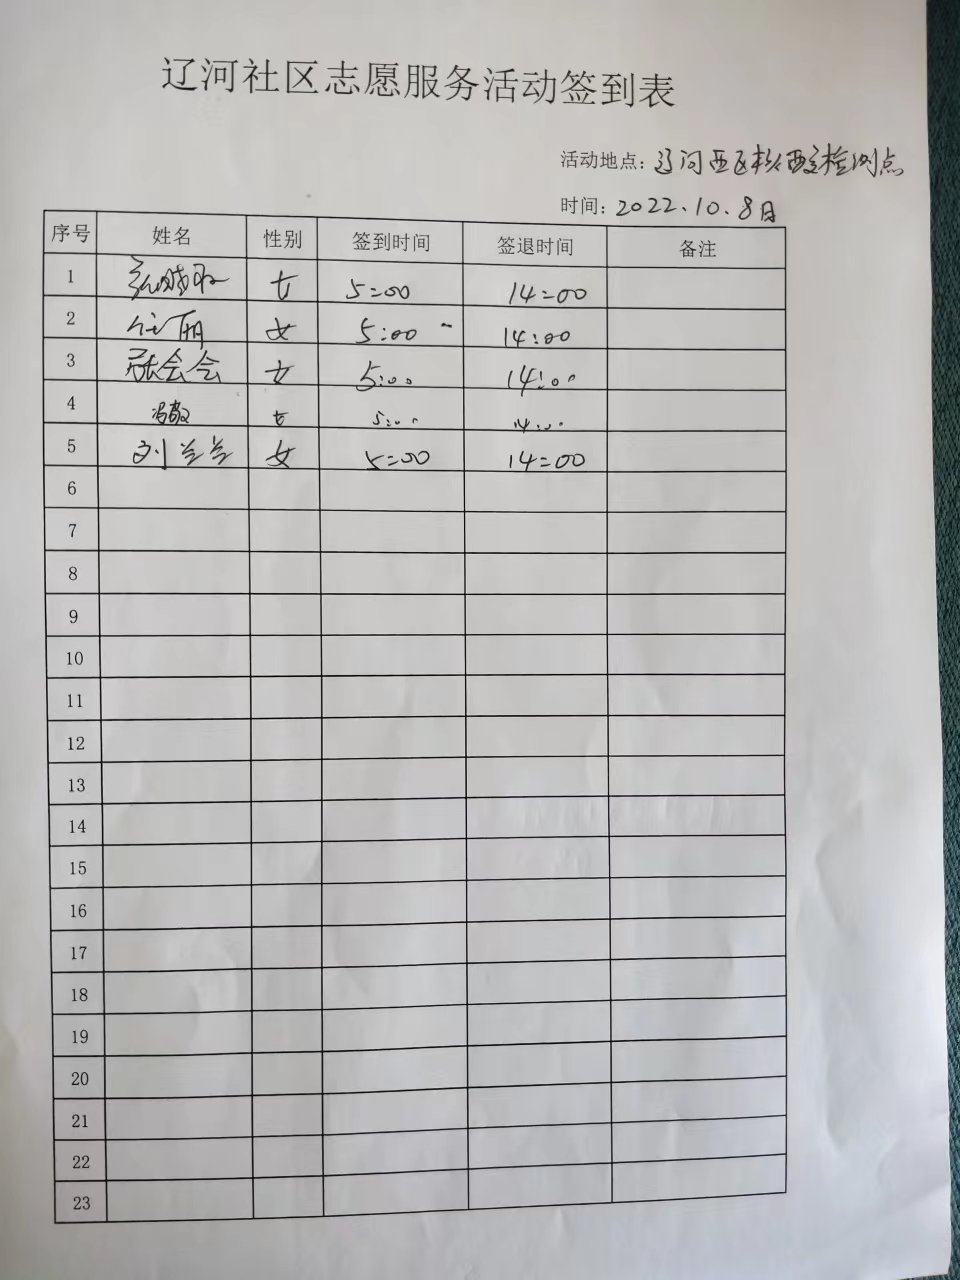 辽河社区志愿服务活动签到表
活动地点：辽河西区核酸检测点
时间：2022.10.8日
序号 姓名 性别 签到时间 签退时间 备注
1 女 5:00 14:00
2 任丽 女 5:00 14:00
3 会会 女 5:00 14:00
4 冯敬 女 5:00 14:00
5 刘兰兰 女 5:00 14:00
6
7
8
9
10
11
12
13
14
15
16
17
18
19
20
21
22
23